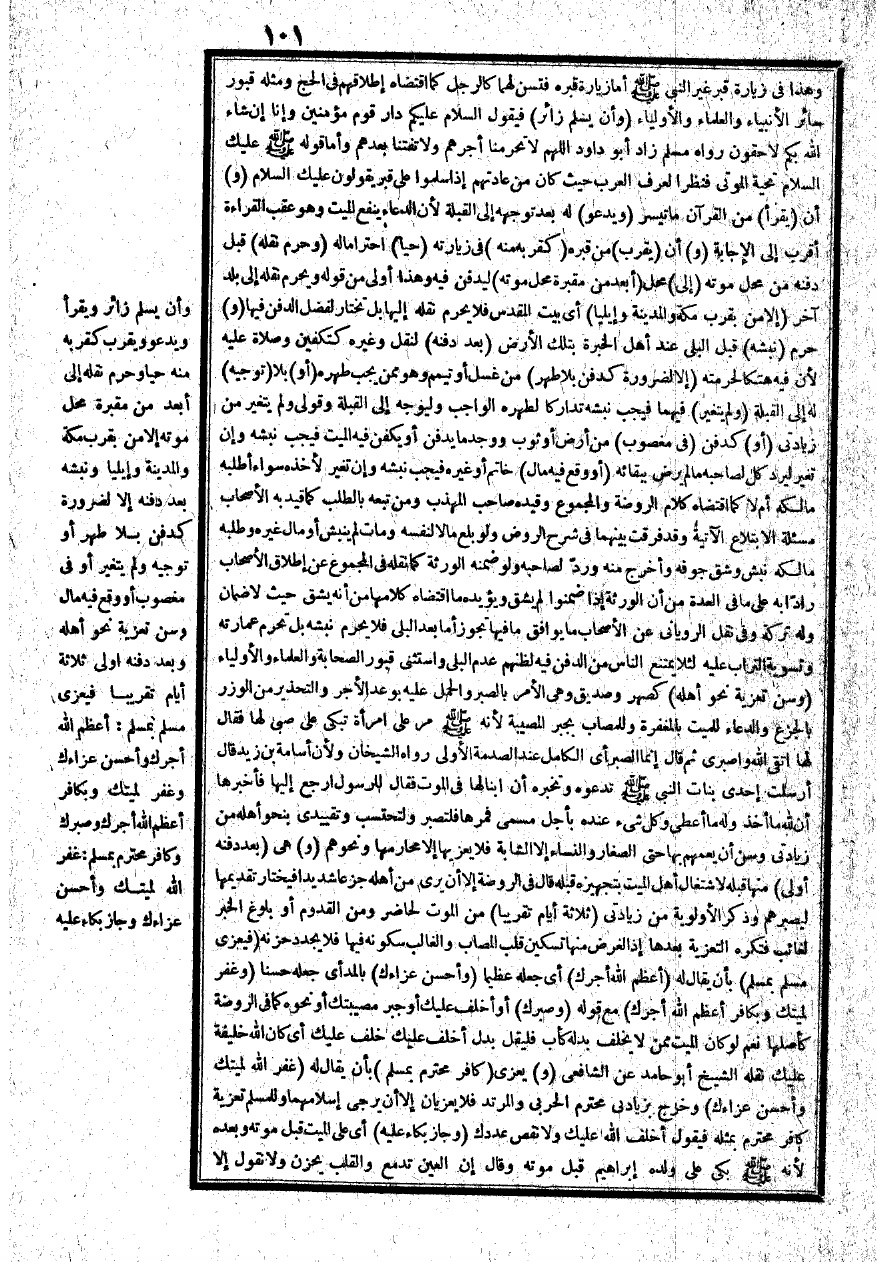 ١٠١
وهذا فى زيارة قبر غير النبي ﷺ أما زيارة قبره فتسن لهما كالرجل كما اقتضاه إطلاقهم فى الحج ومثله قبور
سائر الأنبياء والعلماء والأولياء (وأن يسلم زائر) فيقول السلام عليكم دار قوم مؤمنين وإنا إن شاء
الله بكم لاحقون رواه مسلم زاد أبو داود اللهم لا تحرمنا أجرهم ولا تفتنا بعدهم وأما قوله ﷺ عليك
السلام تحية الموتى فنظرا لعرف العرب حيث كان من عادتهم إذا سلموا على قبر يقولون عليك السلام (و)
أن (يقرأ) من القرآن ما تيسر (ويدعو) له بعد توجهه إلى القبلة لأن الدعاء ينفع الميت وهو عقب القراءة
أقرب إلى الإجابة (و) أن (يقرب) من قبره (كقربه منه) فى زيارته (حيا) احتراما له (وحرم نقله) قبل
دفنه من محل موته (إلى) محل (أبعد من مقبرة محل موته) ليدفن فيه وهذا أولى من قوله ويحرم نقله إلى بلد
آخر (إلا من بقرب مكة والمدينة وإيليا) أى بيت المقدس فلا يحرم نقله إليها بل تختار لفضل الدفن فيها (و)
حرم (نبشه) قبل البلى عند أهل الخبرة بتلك الأرض (بعد دفنه) لنقل وغيره كتكفين وصلاة عليه
لأن فيه هتكا لحرمته (إلا لضرورة كدفن بلا طهر) من غسل أو تيمم وهو ممن يجب طهره (أو) بلا (توجيه)
له إلى القبلة (ولم يتغير) فيهما فيجب نبشه تداركا لطهره الواجب وليوجه إلى القبلة وقولى ولم يتغير من
زيادتى (أو) كدفن (فى مغصوب) من أرض أو ثوب ووجد ما يدفن أو يكفن فيه الميت فيجب نبشه وإن
تغير ليرد كل لصاحبه ما لم يرض ببقائه (أو وقع فيه مال) خاتم أو غيره فيجب نبشه وإن تغير لأخذه سواء أطلبه
مالكه أم لا كما اقتضاه كلام الروضة والمجموع وقيده صاحب المهذب ومن تبعه بالطلب كما قيد به الأصحاب
مسئلة الابتلاع الآتية وقد فرقت بينهما فى شرح الروض ولو بلع مالا لنفسه ومات لم ينبش أو مال غيره وطلبه
مالكه نبش وشق جوفه وأخرج منه وردّ لصاحبه ولو ضمنه الورثة كما نقله فى المجموع عن إطلاق الأصحاب
رادّا به على ما فى العدة من أن الورثة إذا ضمنوا لم يشق ويؤيده ما اقتضاه كلامها من أنه يشق حيث لا ضمان
وله تركة وفى نقل الرويانى عن الأصحاب ما يوافق ما فيها تجوز أما بعد البلى فلا يحرم نبشه بل تحرم عمارته
وتسوية التراب عليه لئلا يمتنع الناس من الدفن فيه لظنهم عدم البلى واستثنى قبور الصحابة والعلماء والأولياء
(وسن تعزية نحو أهله) كصهر وصديق وهى الأمر بالصبر والحمل عليه بوعد الأجر والتحذير من الوزر
بالجزع والدعاء للميت بالمغفرة وللمصاب بجبر المصيبة لأنه ﷺ مر على امرأة تبكى على صبى لها فقال
لها اتقى الله واصبرى ثم قال إنما الصبر أى الكامل عند الصدمة الأولى رواه الشيخان ولأن أسامة بن زيد قال
أرسلت إحدى بنات النبي ﷺ تدعوه وتخبره أن ابنا لها فى الموت فقال للرسول ارجع إليها فأخبرها
أن لله ما أخذ وله ما أعطى وكل شىء عنده بأجل مسمى فمرها فلتصبر ولتحتسب وتقييدى بنحو أهله من
زيادتى وسن أن يعمهم بها حتى الصغار والنساء إلا الشابة فلا يعزيها إلا محارمها ونحوهم (و) هى (بعد دفنه
أولى) منها قبله لاشتغال أهل الميت بتجهيزه قبله قال فى الروضة إلا أن يرى من أهله جزعا شديدا فيختار تقديمها
ليصبرهم وذكر الأولوية من زيادتى (ثلاثة أيام تقريبا) من الموت لحاضر ومن القدوم أو بلوغ الخبر
لغائب فتكره التعزية بعدها إذ الغرض منها تسكين قلب المصاب والغالب سكونه فيها فلا يجدد حزنه (فيعزى
مسلم بمسلم) بأن يقال له (أعظم الله أجرك) أى جعله عظيما (وأحسن عزاءك) بالمد أى جعله حسنا (وغفر
لميتك وبكافر أعظم الله أجرك) مع قوله (وصبرك) أو أخلف عليك أو جبر مصيبتك أو نحوه كما فى الروضة
كأصلها نعم لو كان الميت ممن لا يخلف بدله كأب فليقل بدل أخلف عليك خلف عليك أى كان الله خليفة
عليك نقله الشيخ أبو حامد عن الشافعى (و) يعزى (كافر محترم بمسلم) بأن يقال له (غفر الله لميتك
وأحسن عزاءك) وخرج بزيادتى محترم الحربى والمرتد فلا يعزيان إلا أن يرجى إسلامهما وللمسلم تعزية
كافر محترم بمثله فيقول أخلف الله عليك ولا نقص عددك (وجاز بكاء عليه) أى على الميت قبل موته وبعده
لأنه ﷺ بكى على ولده إبراهيم قبل موته وقال إن العين تدمع والقلب يحزن ولا نقول إلا
وأن يسلم زائر ويقرأ
ويدعو ويقرب كقربه
منه حيا وحرم نقله إلى
أبعد من مقبرة محل
موته إلا من بقرب مكة
والمدينة وإيليا ونبشه
بعد دفنه إلا لضرورة
كدفن بلا طهر أو
توجيه ولم يتغير أو فى
مغصوب أو وقع فيه مال
وسن تعزية نحو أهله
وبعد دفنه اولى ثلاثة
أيام تقريبا فيعزى
مسلم بمسلم : أعظم الله
أجرك وأحسن عزاءك
وغفر لميتك وبكافر
أعظم الله أجرك وصبرك
وكافر محترم بمسلم : غفر
الله لميتك وأحسن
عزاءك وجاز بكاء عليه